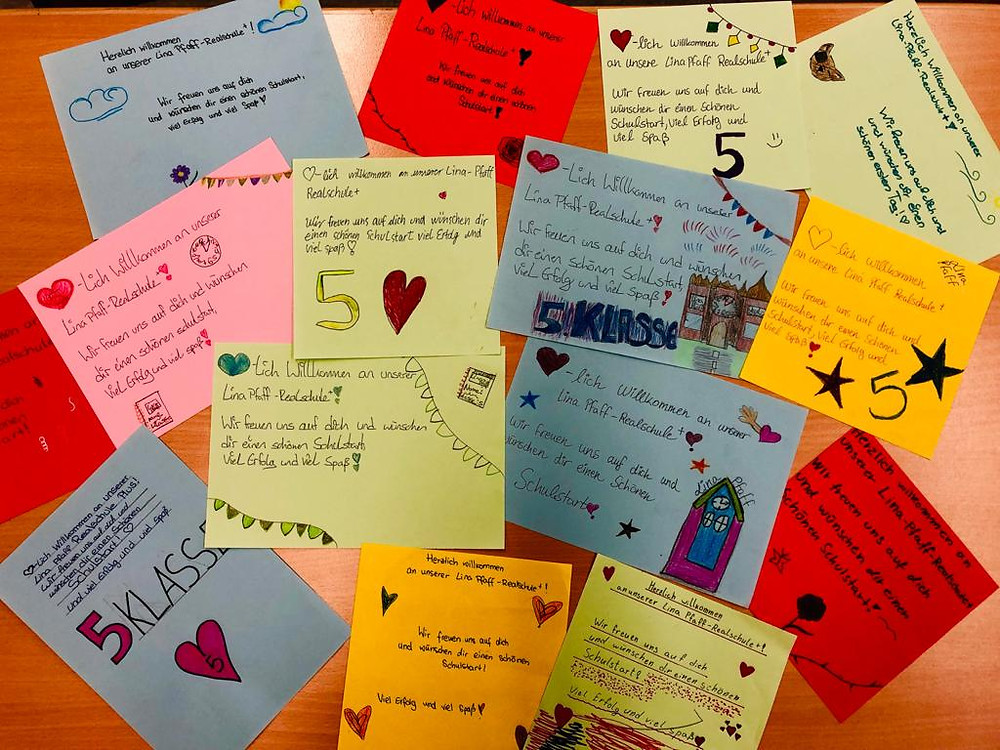 Herzlich willkommen
an unserer Lina Pfaff-Realschule+!
Wir freuen uns auf dich
und wünschen dir einen schönen Schulstart,
viel Erfolg und viel Spaß!
Herzlich willkommen an unserer
Lina Pfaff-Realschule+
Wir freuen uns auf dich
und wünschen dir einen schönen
Schulstart!
-lich willkommen
an unsere Lina Pfaff Realschule+
Wir freuen uns auf dich und
wünschen dir einen schönen
Schulstart, viel Erfolg und
viel Spaß
5
Herzlich Willkommen an unserer
Lina-Pfaff-Realschule+!
Wir freuen uns auf dich und
und wünschen dir einen
schönen ersten Tag!
-Lich Willkommen an unserer
Lina Pfaff-Realschule+!
Wir freuen uns auf dich und wünschen
dir einen schönen Schulstart,
viel Erfolg und viel spaß!
-lich willkommen an unserer Lina-Pfaff
Realschule+
Wir freuen uns auf dich und wünschen dir
einen schönen Schulstart viel Erfolg und
viel spaß
5
-Lich Willkommen an unserer
Lina Pfaff-Realschule+!
Wir freuen uns auf dich und wünschen
dir einen schönen Schulstart,
viel Erfolg und viel Spaß!
5 KLASSE
-lich willkommen
an unsere Lina Pfaff Realschule+
Lina
Pfaff
Wir freuen uns auf dich und
wünschen dir einen schönen
Schulstart, viel Erfolg und
viel spaß
5
-Lich Willkommen an unserer
Lina Pfaff-Realschule+!
Wir freuen uns auf dich und wünschen
dir einen schönen Schulstart
Viel Erfolg und Viel Spaß!
-lich Willkommen an unserer
Lina Pfaff-Realschule+!
Wir freuen uns auf dich und
wünschen dir einen Schönen
Schulstart
Lina Pfaff
-Lich Willkommen an unserer
Lina Pfaff Realschule Plus!
Wir freuen uns auf dich und
wünschen dir einen schönen
Schulstart!
und viel Erfolg und viel spaß.
5 KLASSE
5
Herzlich willkommen
an unserer Lina Pfaff-Realschule+!
Wir freuen uns auf dich
und wünschen dir einen schönen
Schulstart!
Viel Erfolg und viel Spaß!
Herzlich willkommen
an unserer Lina Pfaff-Realschule+!
Wir freuen uns auf dich
und wünschen dir einen schönen
Schulstart!
Viel Erfolg und viel spaß
Herzlich willkommen an
unserer Lina-Pfaff-Realschule+
Wir freuen uns auf dich
und wünschen dir einen
Schönen Schulstart!